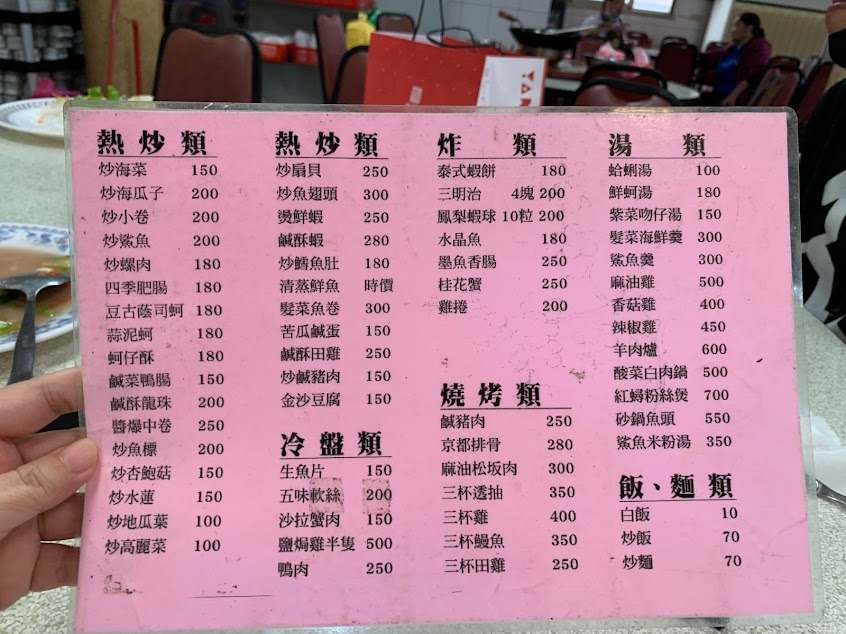 熱炒類
炒海菜 150
炒海瓜子 200
炒小卷 200
炒鯊魚 200
炒螺肉 180
四季肥腸 180
豆古蔭司蚵 180
蒜泥蚵 180
蚵仔酥 180
鹹菜鴨腸 180
鹹酥龍珠 200
醬爆中卷 250
炒魚標 200
炒杏鮑菇 150
炒水蓮 150
炒地瓜葉 100
炒高麗菜 100
熱炒類
炒扇貝 250
炒魚翅頭 300
燙鮮蝦 250
鹹酥蝦 280
炒鱈魚肚 180
清蒸鮮魚 時價
髮菜魚卷 300
苦瓜鹹蛋 150
鹹酥田雞 250
炒鹹豬肉 150
金沙豆腐 150
冷盤類
生魚片 150
五味軟絲 200
沙拉蟹肉 150
鹽焗雞半隻 500
鴨肉 250
炸類
泰式蝦餅 180
三明治 4塊 200
鳳梨蝦球 10粒 200
水晶魚 180
墨魚香腸 250
桂花蟹 250
雞捲 200
燒烤類
鹹豬肉 250
京都排骨 280
麻油松坂肉 300
三杯透抽 350
三杯雞 400
三杯鰻魚 350
三杯田雞 250
湯類
蛤蜊湯 100
鮮蚵湯 180
紫菜吻仔湯 150
髮菜海鮮羹 300
鯊魚羹 300
麻油雞 500
香菇雞 400
辣椒雞 450
羊肉爐 600
酸菜白肉鍋 500
紅蟳粉絲煲 700
砂鍋魚頭 550
鯊魚米粉湯 350
飯、麵類
白飯 10
炒飯 70
炒麵 70